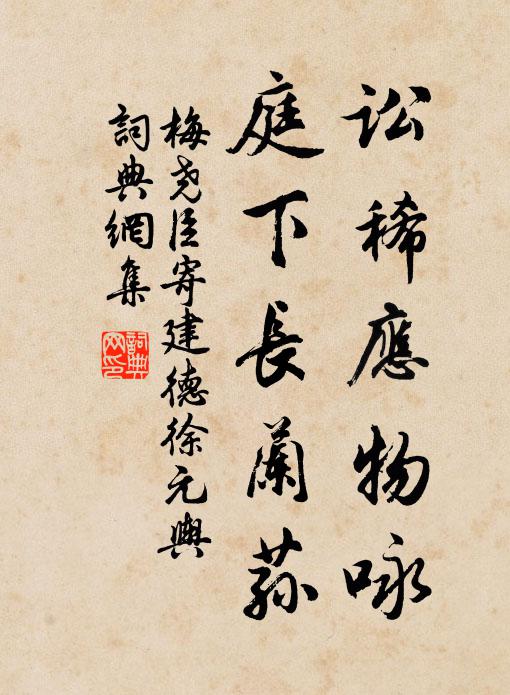 訟稀應物咏
庭下長蘭蓀
梅堯臣寄建德徐元輿
詞典網集
詞典網印